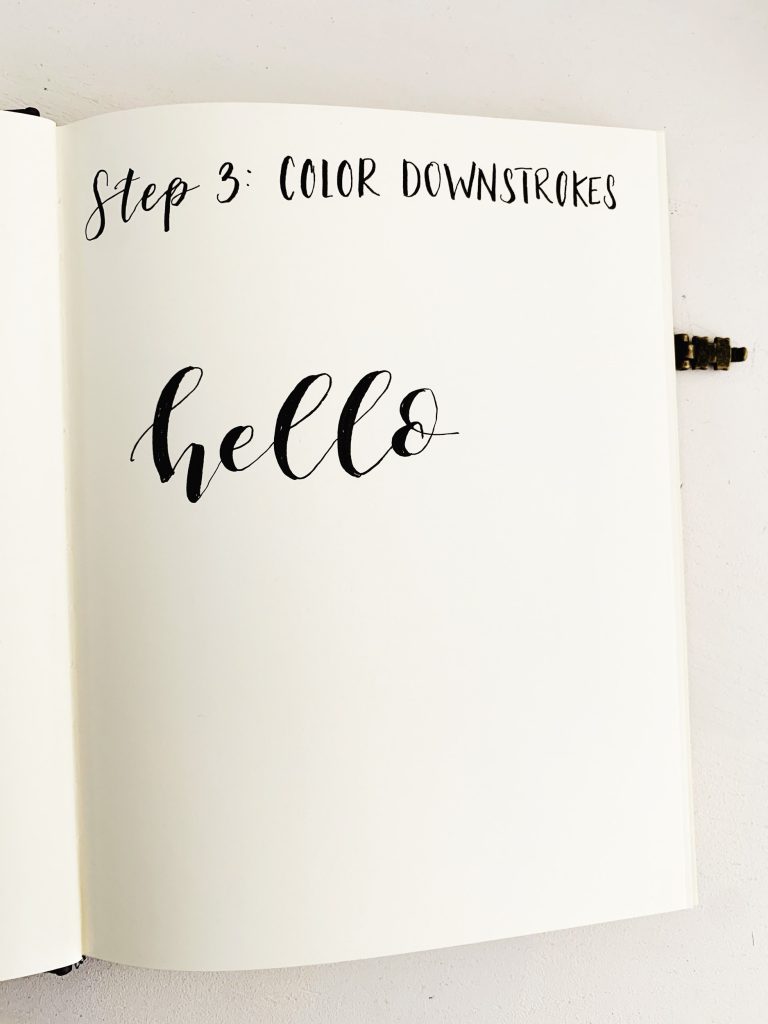 Step 3: COLOR DOWNSTROKES
hello